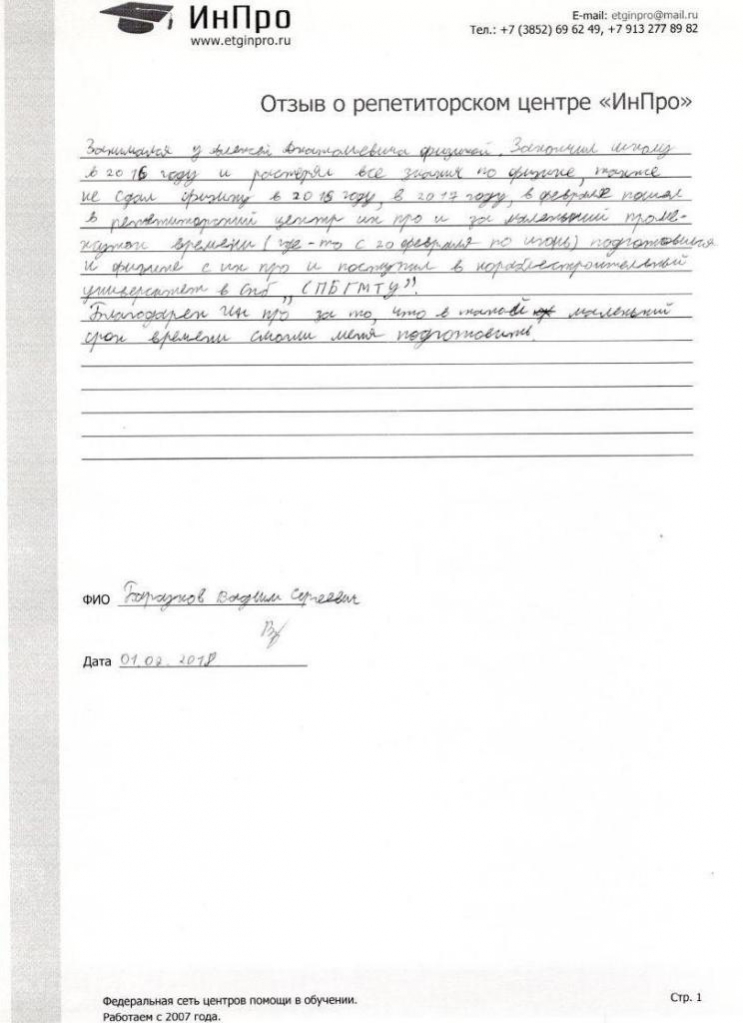 ИнПро
www.etginpro.ru
E-mail: etginpro@mail.ru
Тел.: +7 (3852) 69 62 49, +7 913 277 89 82
Отзыв о репетиторском центре «ИнПро»
Занимался у Алексей Анатольевича физикой. Закончил школу
в 2015 году и растерял все знания по физике, также
не сдал физику в 2015 году, в 2017 году, в феврале пошел
в репетиторский центр ин про и за маленький проме-
жуток времени (где-то с 20 февраля по июнь) подготовился
к физике с ин про и поступил в кораблестроительный
университет в Спб „СПБГМТУ”.
Благодарен Ин про за то, что в такой маленький
срок времени смогли меня подготовить.
ФИО Вадим Сергеевич
Дата 01.02.2018
Федеральная сеть центров помощи в обучении.
Работаем с 2007 года.
Стр. 1